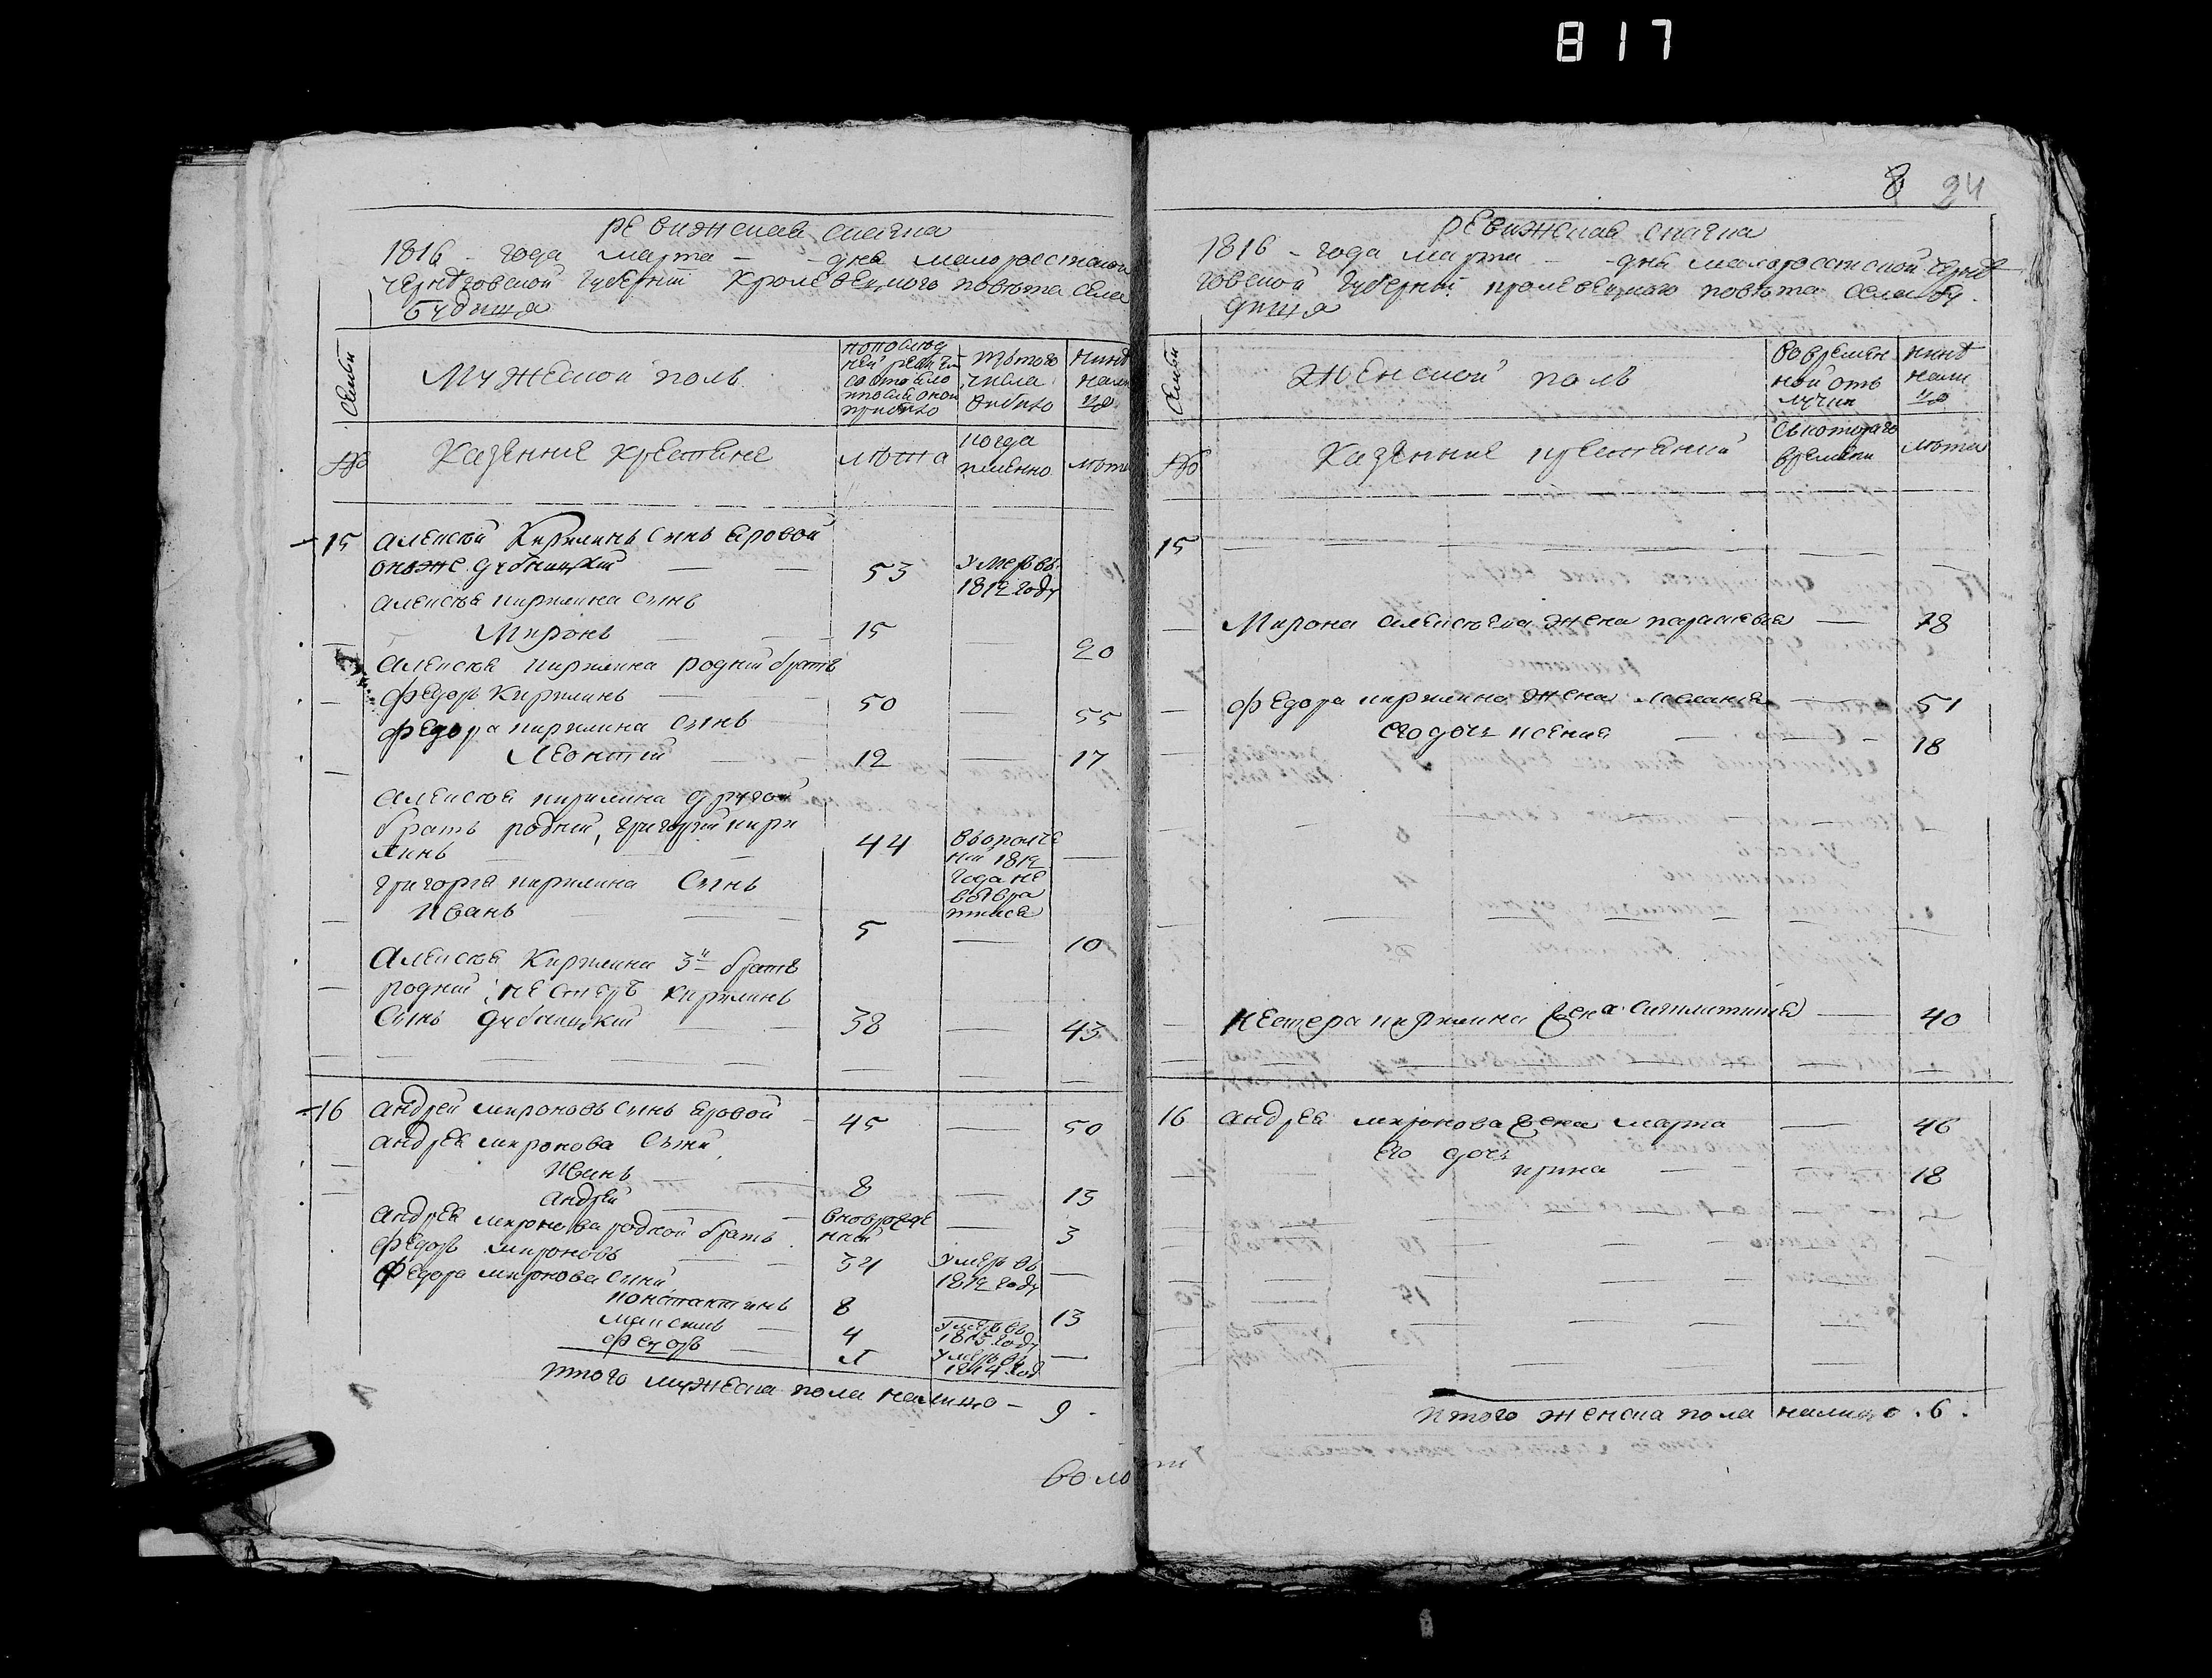 817
ревижская сказка
1816 - года марта - - дня малороссиской
чернѣговской губернѣи Кролевецкого повѣта села
Будища
Семьи
Мужеской полъ
попослѣд
ней ревизѣи
состояло
ипослѣ оной
прибыло
изътого
числа
выбыло
нинѣ
нали
цо
№
Казенние крестяне
лѣта
когда
имянно
лѣта
15 алексей Кирилинъ синъ Яровой
онъже дубницкий — — 53 умеръ въ
1812 году
алексея кирилина синъ
Миронъ — — 15 — 20
алексея кирилина родний братъ
федоръ Кирилинъ — 50 — 55
федора кирилина синъ
Леонтий — 12 — 17
алексея кирилина другой
братъ родний, григорий кири
линъ — — 44 вополче
нии 1812
года не
возвра
тился —
григория кирилина синъ
иванъ — 5 — 10
Алексея Кирилина 3й братъ
родний, нестеръ кирилинъ
синъ дубницкий — — 38 — 43
16 андрей мироновъ синъ яровой 45 — 50
андрея миронова сини
иванъ 8 — 13
андрей вноврожде
ний — 3
андрея миронова родной братъ
федоръ мироновъ — 34 умеръ въ
1812 году —
федора миронова сини
константинъ 8 — 13
максимъ — 4 умеръ въ
1815 году
федоръ — умеръ въ
1814 год —
итого мужеска пола налицо - 9.
8 24
ревижская сказка
1816 - года марта - - дня малоросстиской чернѣ
говской губернѣи кролевецкого повѣта села бу-
дища
Семьи
Женской полъ
вовремен
ной отъ
лучки
нинѣ
нали
цо
№
Казенние крестяний
съкотораго
времени
лѣта
15
Мирона алексеева жена параскевия — 18
федора кирилина жена мелания — 51
его дочь ксения — — 18
нестера кирилина жена — 40
16 андрея миронова жена марта — 46
его дочь
ирина — 18
итого женска пола налицо . 6 .